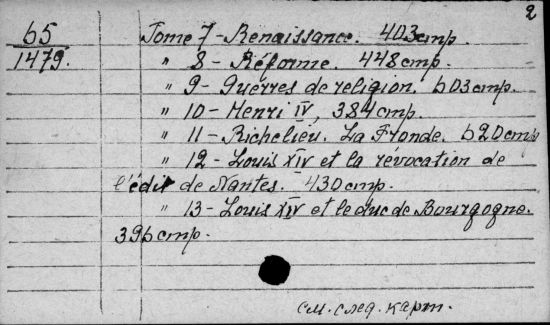 2
65
1479.
Tome 7 - Renaissance. 403 стр.
" 8 - Réforme. 448 стр.
" 9 - Guerres de religion. 503 стр.
" 10 - Henri IV, 384 стр.
" 11 - Richelieu. La Fronde. 520 стр
" 12 - Louis XIV et la révocation de
l'édit de Nantes. 430 стр.
" 13 - Louis XIV et le duc de Bourgogne.
396 стр.
см. след. карт.